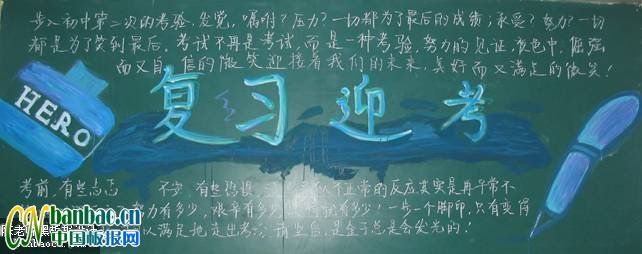 步入初中第二次的考验,处觉,嘱咐?压力?一切都为了最后的成绩;承受?努力?一切
都是为了笑到最后。考试不再是考试,而是一种考验,努力的见证,夜色中,倔强
而又自信的微笑迎接着我们的未来,美好而又满足的微笑!
HERO
复习迎考
考前,有些忐忑 不安 有些恐惧 正常的反应其实是再平常不
努力有多少,艰辛有多少 就有多少!一步一个脚印,只有变得
以满足地走出考 请坐信,是金子总是会发光的!
CN banbao.cn
中国板报网